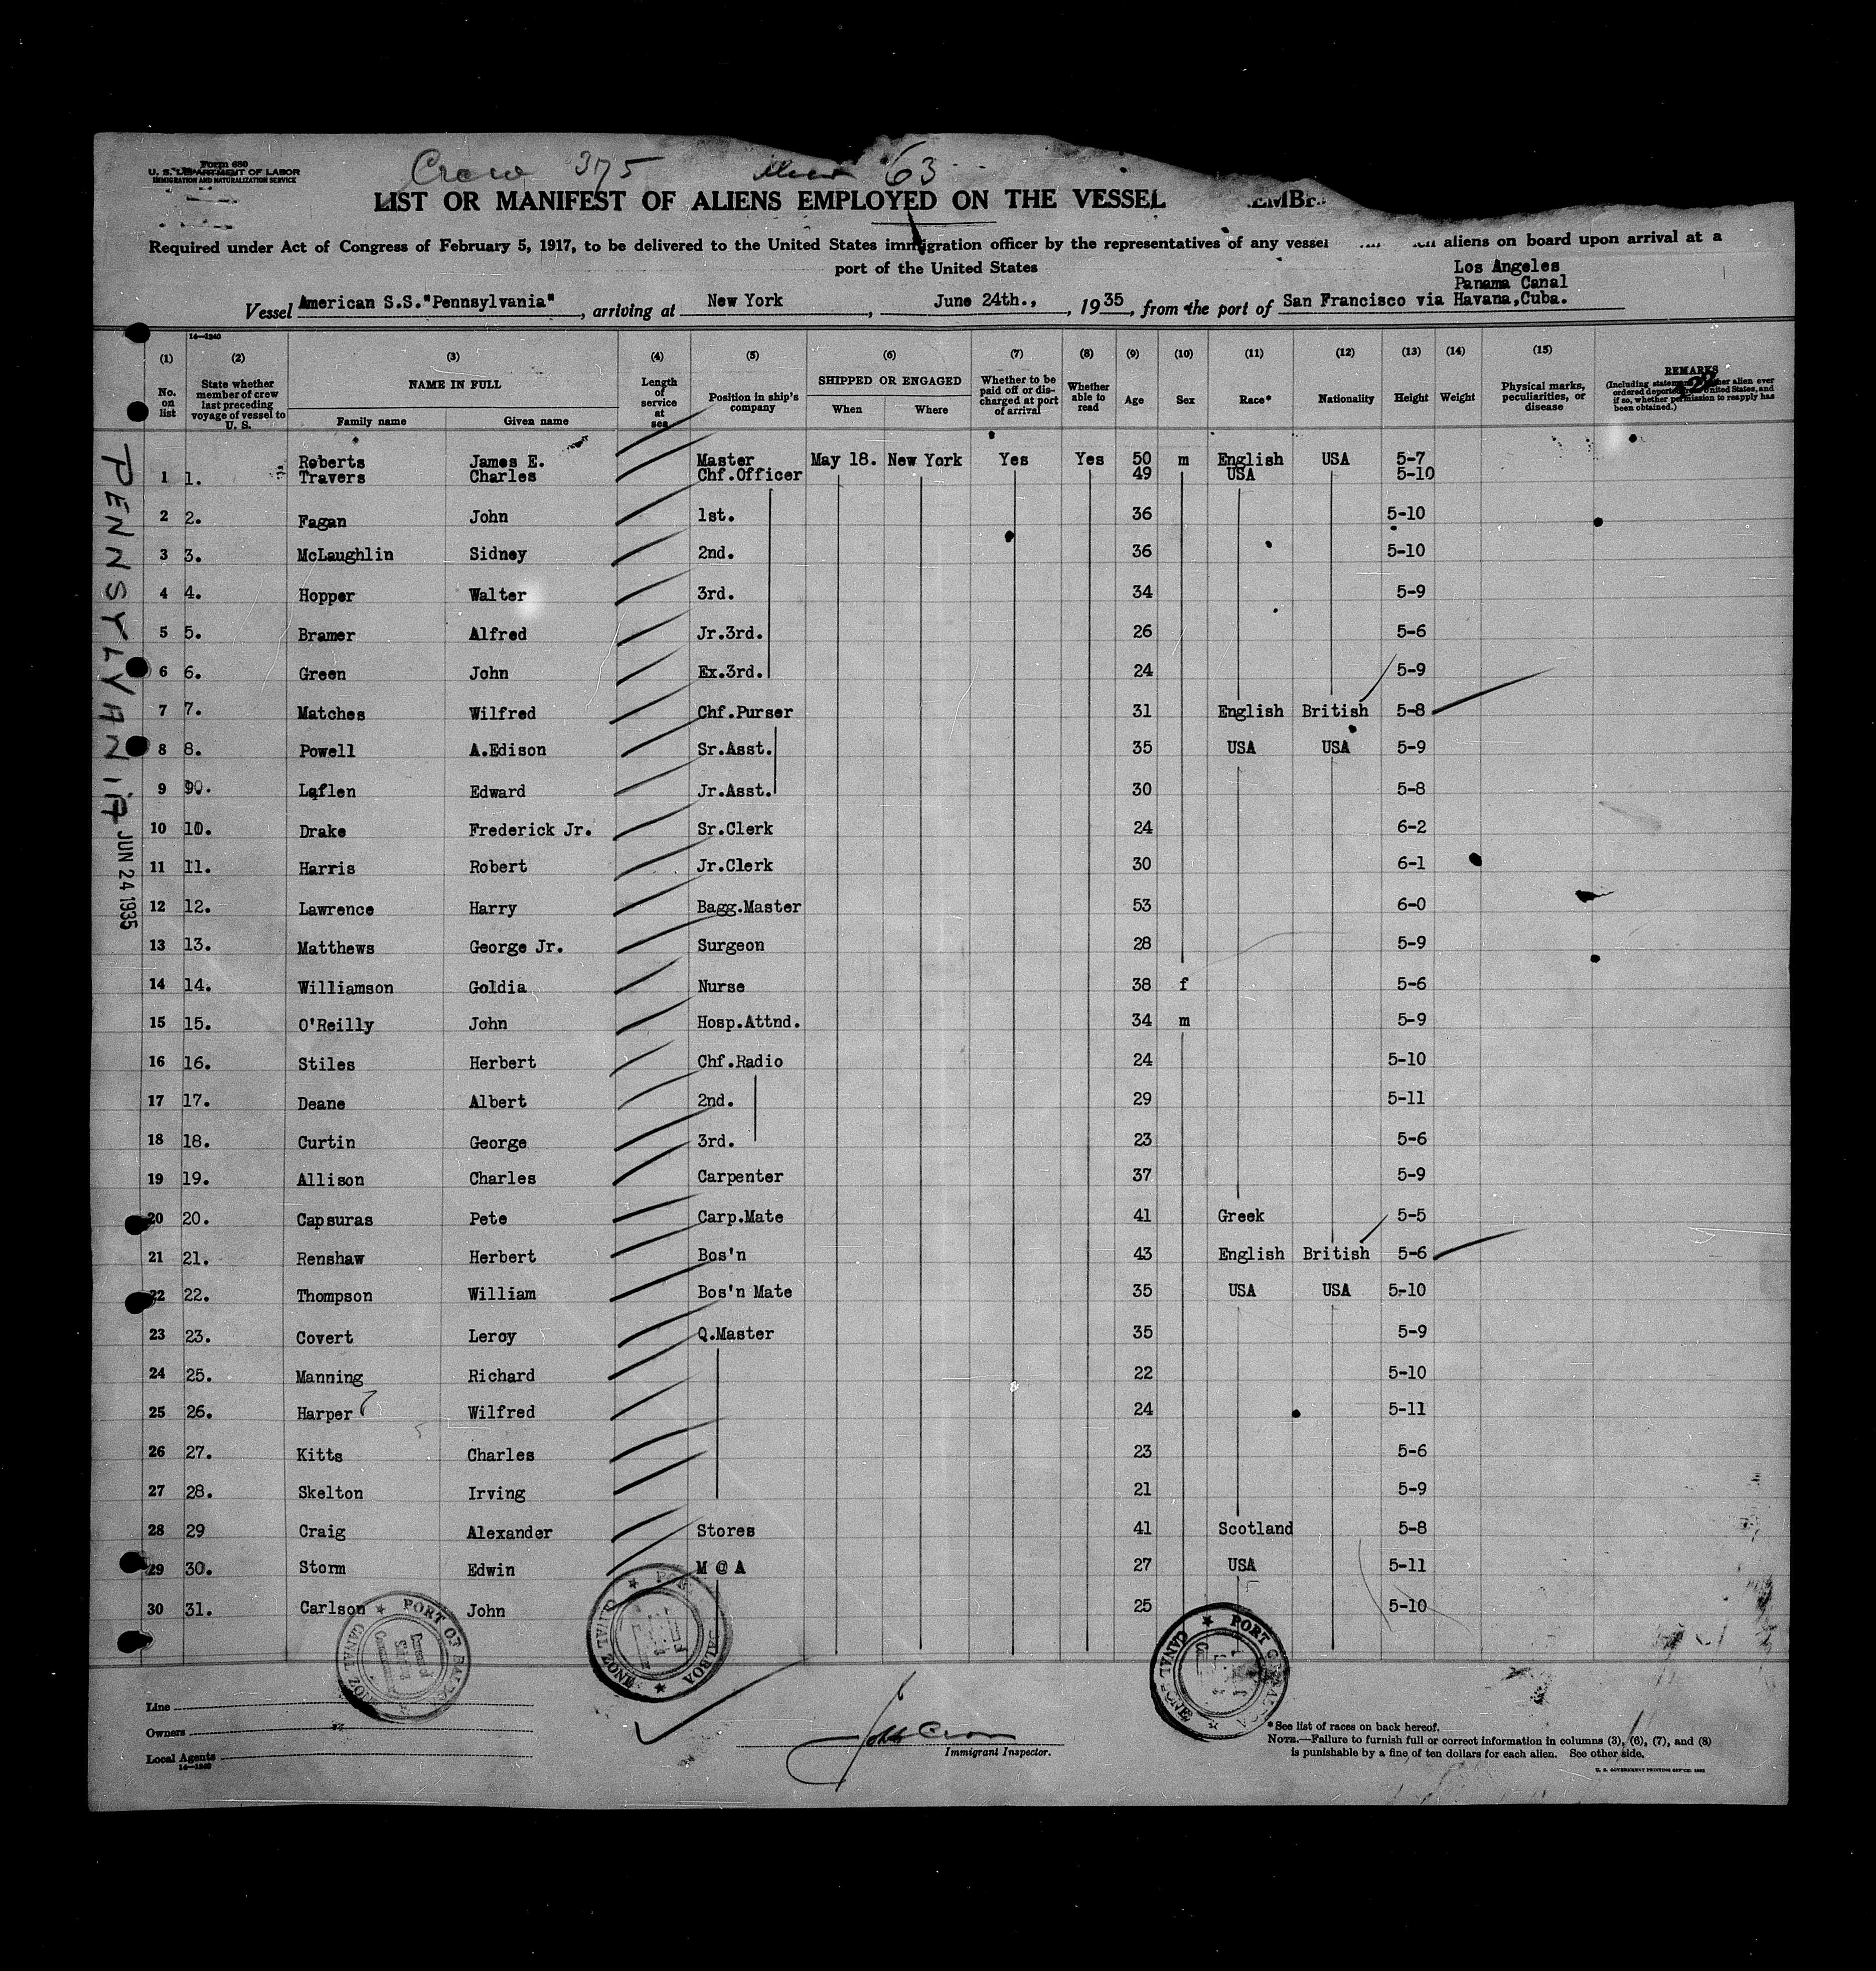 Form 680
U. S. DEPARTMENT OF LABOR
IMMIGRATION AND NATURALIZATION SERVICE
Crew 375 63
LIST OR MANIFEST OF ALIENS EMPLOYED ON THE VESSEL
Required under Act of Congress of February 5, 1917, to be delivered to the United States immigration officer by the representatives of any vessel aliens on board upon arrival at a
port of the United States
Los Angeles
Panama Canal
Vessel American S.S."Pennsylvania", arriving at New York, June 24th., 1935, from the port of San Francisco via Havana,Cuba.
14—1240
(1) (2) (3) (4) (5) (6) (7) (8) (9) (10) (11) (12) (13) (14) (15)
No. on list
State whether member of crew last preceding voyage of vessel to U. S.
NAME IN FULL
Family name Given name
Length of service at sea
Position in ship's company
SHIPPED OR ENGAGED
When Where
Whether to be paid off or discharged at port of arrival
Whether able to read
Age Sex Race* Nationality Height Weight
Physical marks, peculiarities, or disease
REMARKS
Roberts James E. Master May 18. New York Yes Yes 50 m English USA 5-7
1 1. Travers Charles Chf.Officer 49 USA 5-10
2 2. Fagan John 1st. 36 5-10
3 3. McLaughlin Sidney 2nd. 36 5-10
4 4. Hopper Walter 3rd. 34 5-9
5 5. Bramer Alfred Jr.3rd. 26 5-6
6 6. Green John Ex.3rd. 24 5-9
7 7. Matches Wilfred Chf.Purser 31 English British 5-8
8 8. Powell A.Edison Sr.Asst. 35 USA USA 5-9
9 Laflen Edward Jr.Asst. 30 5-8
10 10. Drake Frederick Jr. Sr.Clerk 24 6-2
11 11. Harris Robert Jr.Clerk 30 6-1
12 12. Lawrence Harry Bagg.Master 53 6-0
13 13. Matthews George Jr. Surgeon 28 5-9
14 14. Williamson Goldia Nurse 38 f 5-6
15 15. O'Reilly John Hosp.Attnd. 34 m 5-9
16 16. Stiles Herbert Chf.Radio 24 5-10
17 17. Deane Albert 2nd. 29 5-11
18 18. Curtin George 3rd. 23 5-6
19 19. Allison Charles Carpenter 37 5-9
20 20. Capsuras Pete Carp.Mate 41 Greek 5-5
21 21. Renshaw Herbert Bos'n 43 English British 5-6
22 22. Thompson William Bos'n Mate 35 USA USA 5-10
23 23. Covert Leroy Q.Master 35 5-9
24 25. Manning Richard 22 5-10
25 26. Harper Wilfred 24 5-11
26 27. Kitts Charles 23 5-6
27 28. Skelton Irving 21 5-9
28 29 Craig Alexander Stores 41 Scotland 5-8
29 30. Storm Edwin M @ A 27 USA 5-11
30 31. Carlson John 25 5-10
PENNSYLVANIA
JUN 24 1935
PORT OF BALBOA
CANAL ZONE
BALBOA
CANAL ZONE
PORT
CANAL ZONE
Line
Owners
Local Agents
14—1240
Immigrant Inspector.
*See list of races on back hereof.
NOTE.—Failure to furnish full or correct information in columns (3), (6), (7), and (8)
is punishable by a fine of ten dollars for each alien. See other side.